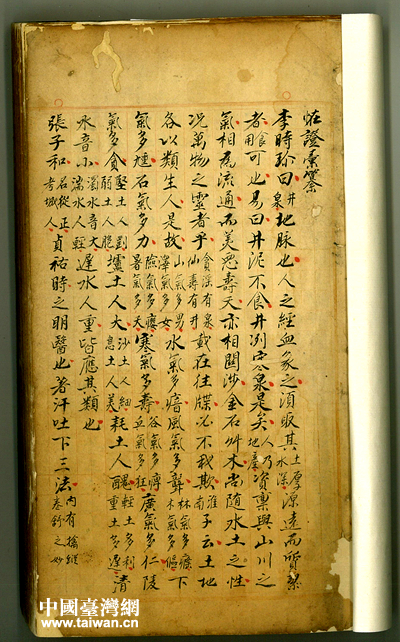 症證彙纂
李時珍曰井泉地脉也人之經血象之須取其土厚水深源遠而質潔
者食用可也易曰井泥不食井冽寒泉是矣人乃地產資稟與山川之
氣相為流通而美惡壽夭亦相關涉金石艸木尚隨水土之性
况萬物之靈者乎貪淫有泉仙壽有井載在往牒必不我欺淮南子云土地
各以類生人是故山氣多男澤氣多女水氣多瘖風氣多聾林氣多癃木氣多傴下
氣多尰石氣多力險氣多癭暑氣多夭寒氣多壽谷氣多痺丘氣多狂廣氣多仁陵
氣多貪堅土人剛弱土人脆壚土人大沙土人細息土人美耗土人醜輕土多利重土多遲清
水音小濁水音大湍水人輕遲水人重皆應其類也
張子和名從正考城人貞祐時之明醫也著汗吐下三法內有擒縱卷舒之妙
中國臺灣網
www.taiwan.cn